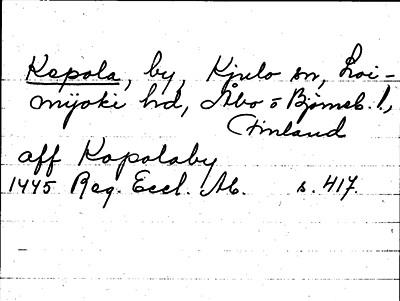 Kepola, by, Kjulo sn, Loi-
mijoki hd, Åbo o Björneb. l,
Finland
aff Kapolaby
1445 Reg. Eccl. Ab. s. 417.